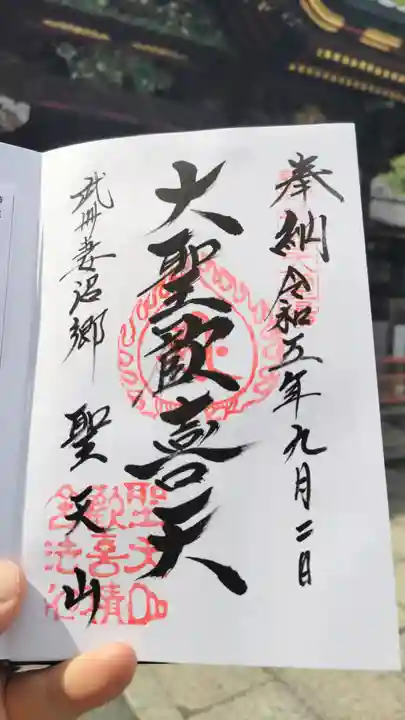 奉納 令和五年九月二日
大聖歓喜天
武州妻沼郷 聖天山